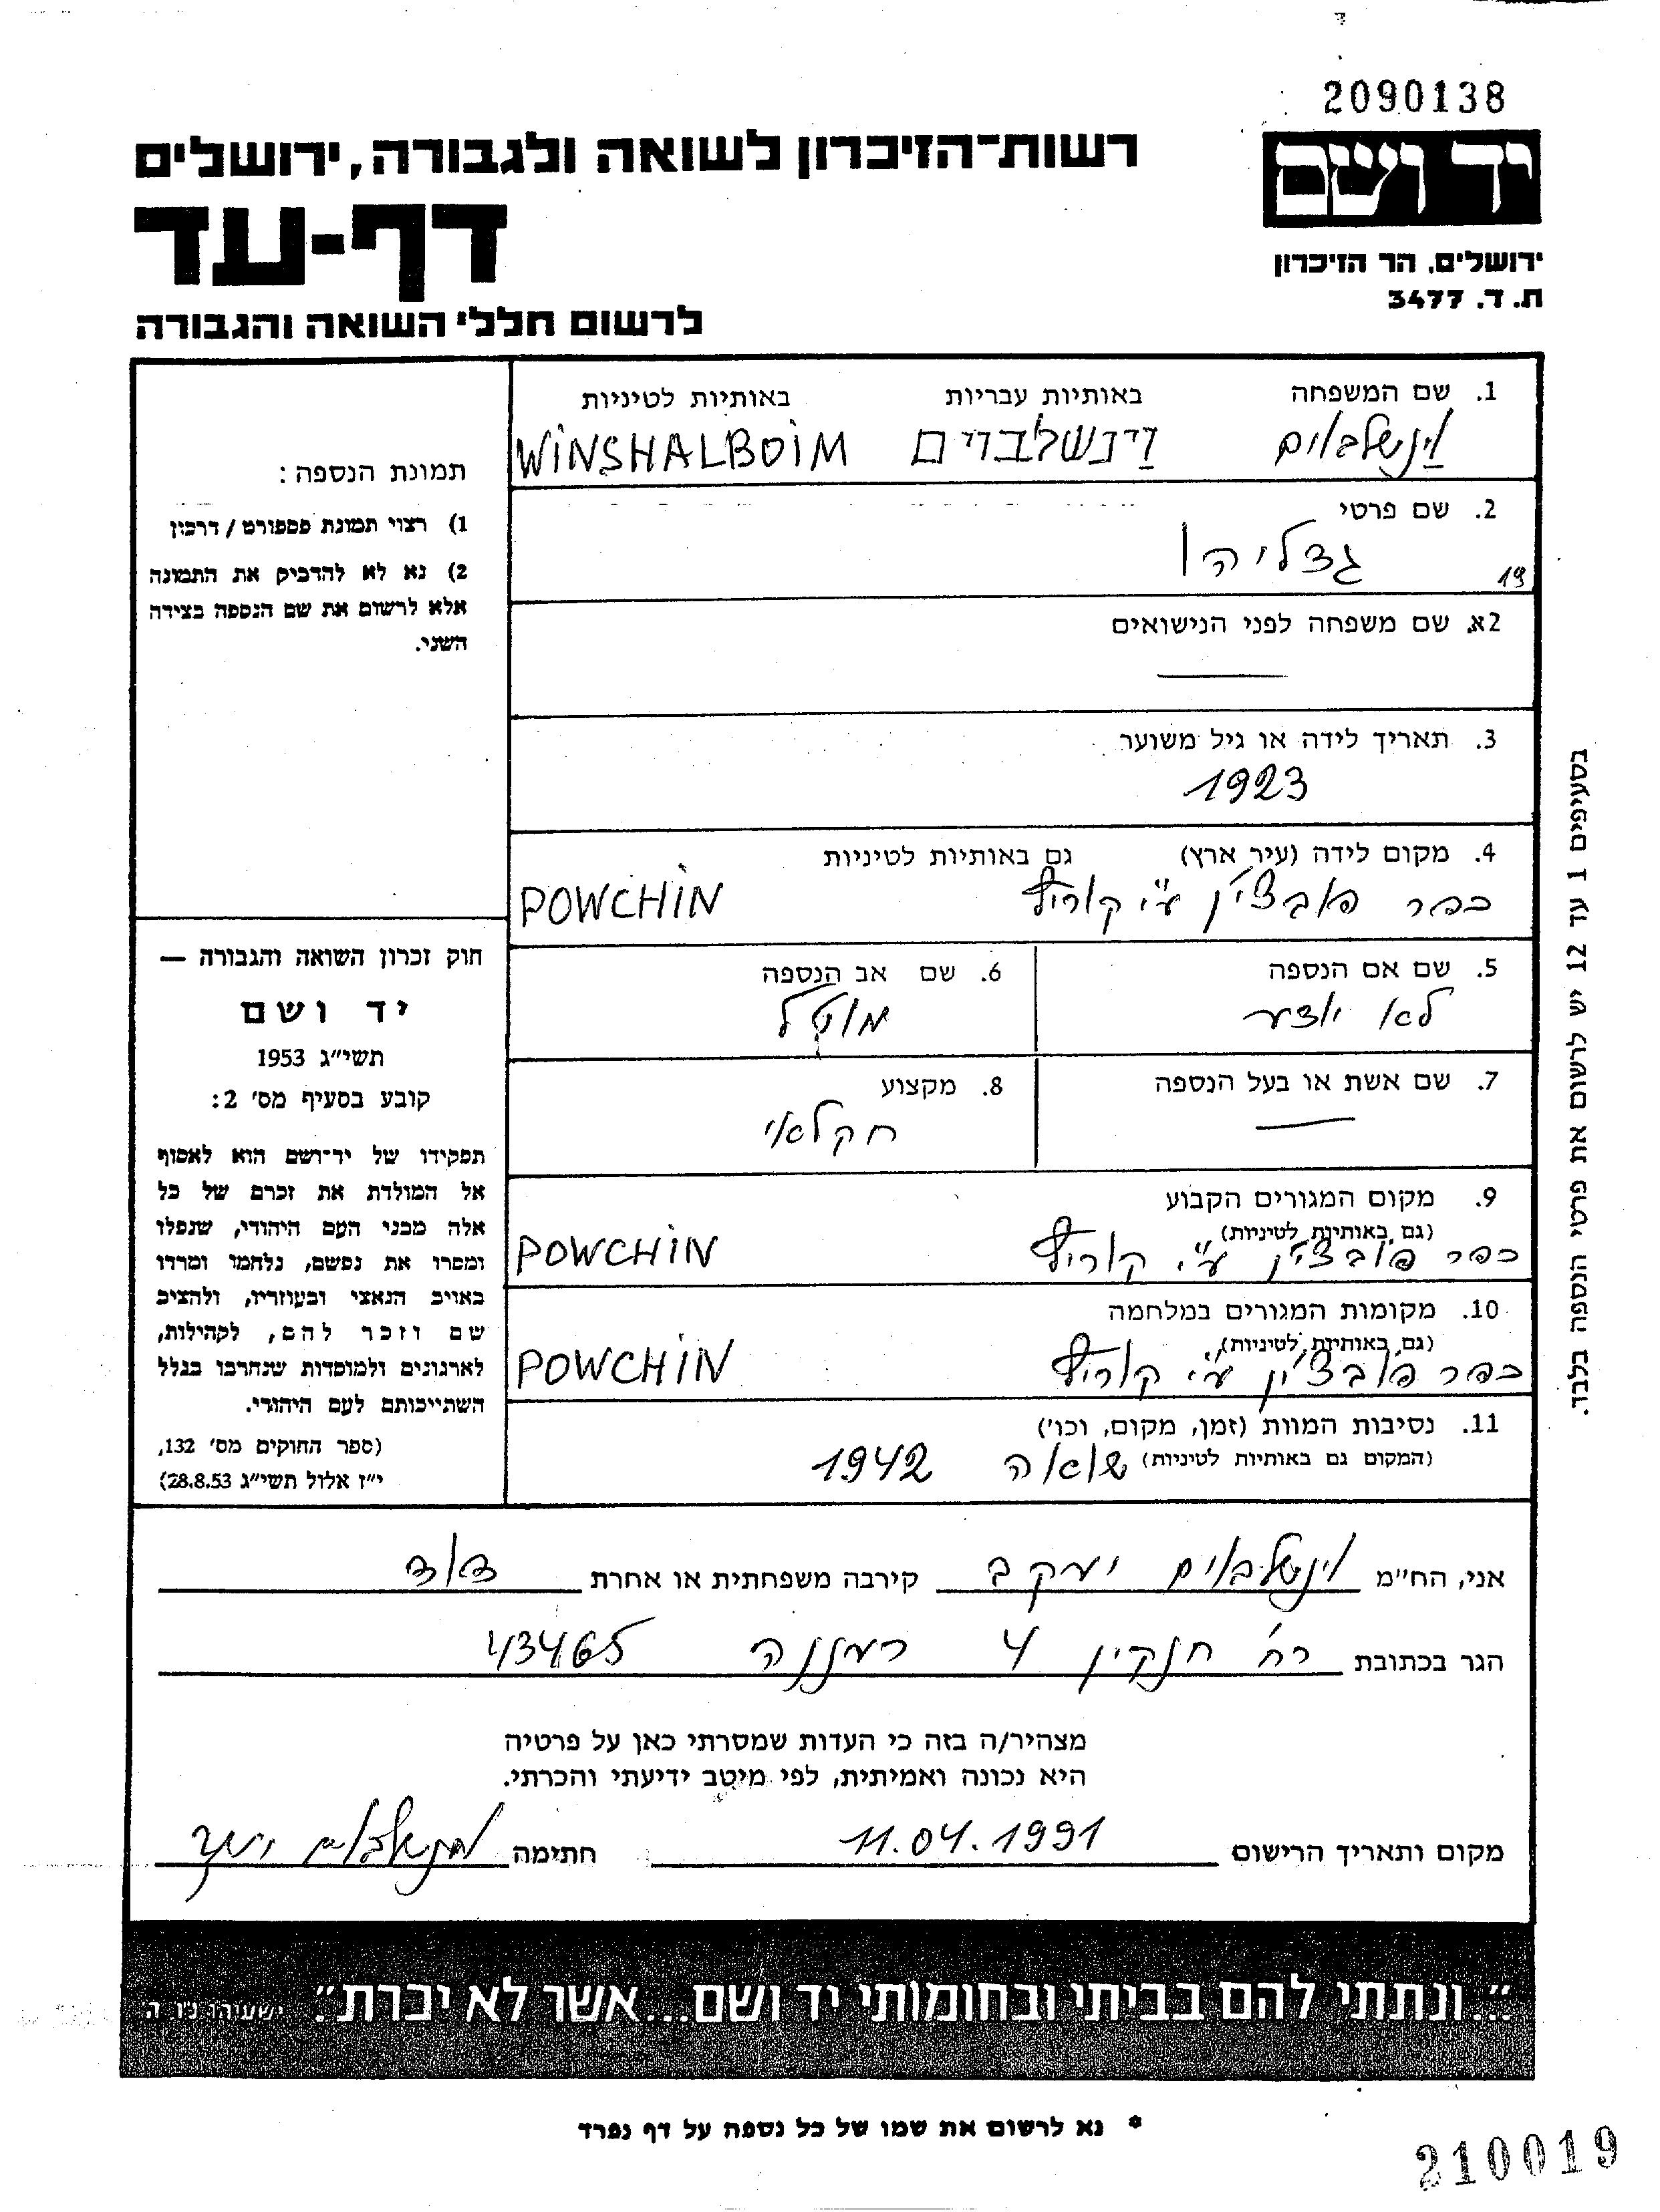 2090138
יד ושם
רשות־הזיכרון לשואה ולגבורה, ירושלים
דף-עד
ירושלים. הר הזיכרון
ת. ד. 3477
לרשום חללי השואה והגבורה
1. שם המשפחה באותיות עבריות באותיות לטיניות
וינשלבוים וינשלבוים WINSHALBOIM
2. שם פרטי
19 גדליהו
2א. שם משפחה לפני הנישואים
3. תאריך לידה או גיל משוער
1923
4. מקום לידה (עיר, ארץ) גם באותיות לטיניות
כפר פובצ'ין ע"י POWCHIN
5. שם אם הנספה
לא יודע
6. שם אב הנספה
מוטל
7. שם אשת או בעל הנספה
8. מקצוע
חקלאי
9. מקום המגורים הקבוע
(גם באותיות לטיניות)
כפר פובצ'ין ע"י POWCHIN
10. מקומות המגורים במלחמה
(גם באותיות לטיניות)
כפר פובצ'ין ע"י POWCHIN
11. נסיבות המוות (זמן, מקום, וכו')
(המקום גם באותיות לטיניות) שואה 1942
תמונת הנספה:
1) רצוי תמונת פספורט / דרכון
2) נא לא להדביק את התמונה
אלא לרשום את שם הנספה בצידה
השני.
חוק זכרון השואה והגבורה —
יד ושם
תשי"ג 1953
קובע בסעיף מס' 2:
תפקידו של יד־ושם הוא לאסוף
אל המולדת את זכרם של כל
אלה מבני העם היהודי, שנפלו
ומסרו את נפשם, נלחמו ומרדו
באויב הנאצי ובעוזריו, ולהציב
שם וזכר להם, לקהילות,
לארגונים ולמוסדות שנחרבו בגלל
השתייכותם לעם היהודי.
(ספר החוקים מס' 132,
י"ז אלול תשי"ג 28.8.53)
בסעיפים 1 עד 12 יש לרשום את פרטי הנספה בלבד.
אני, הח"מ וינשלבוים יעקב קירבה משפחתית או אחרת דוד
הגר בכתובת רח' חנקין 4 רעננה 43465
מצהיר/ה בזה כי העדות שמסרתי כאן על פרטיה
היא נכונה ואמיתית, לפי מיטב ידיעתי והכרתי.
מקום ותאריך הרישום 11.04.1991 חתימה וינשלבוים יעקב
"...ונתתי להם בביתי ובחומותי יד ושם...אשר לא יכרת" ישעיהו נו ה
* נא לרשום את שמו של כל נספה על דף נפרד
210019